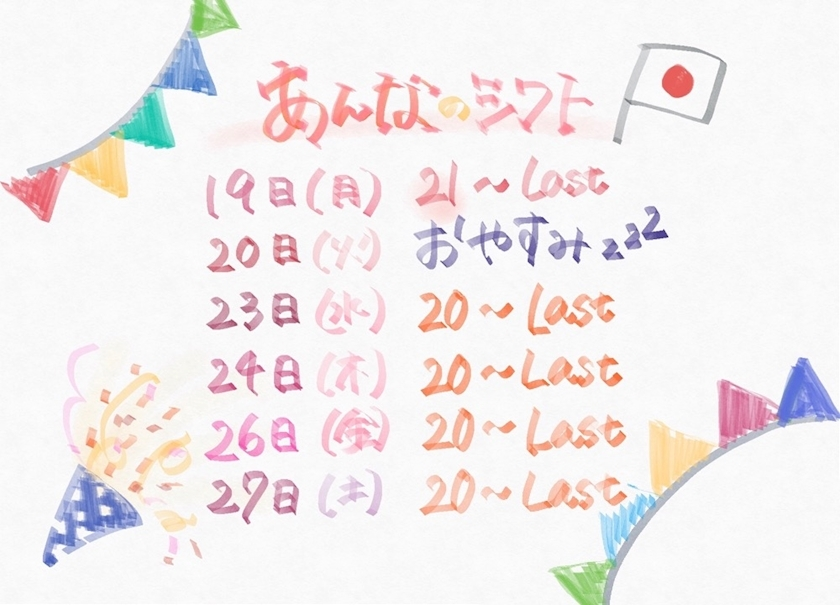 あんなのシフト
19日(月) 21~Last
20日(火) おやすみzzz
23日(水) 20~Last
24日(木) 20~Last
26日(金) 20~Last
27日(土) 20~Last